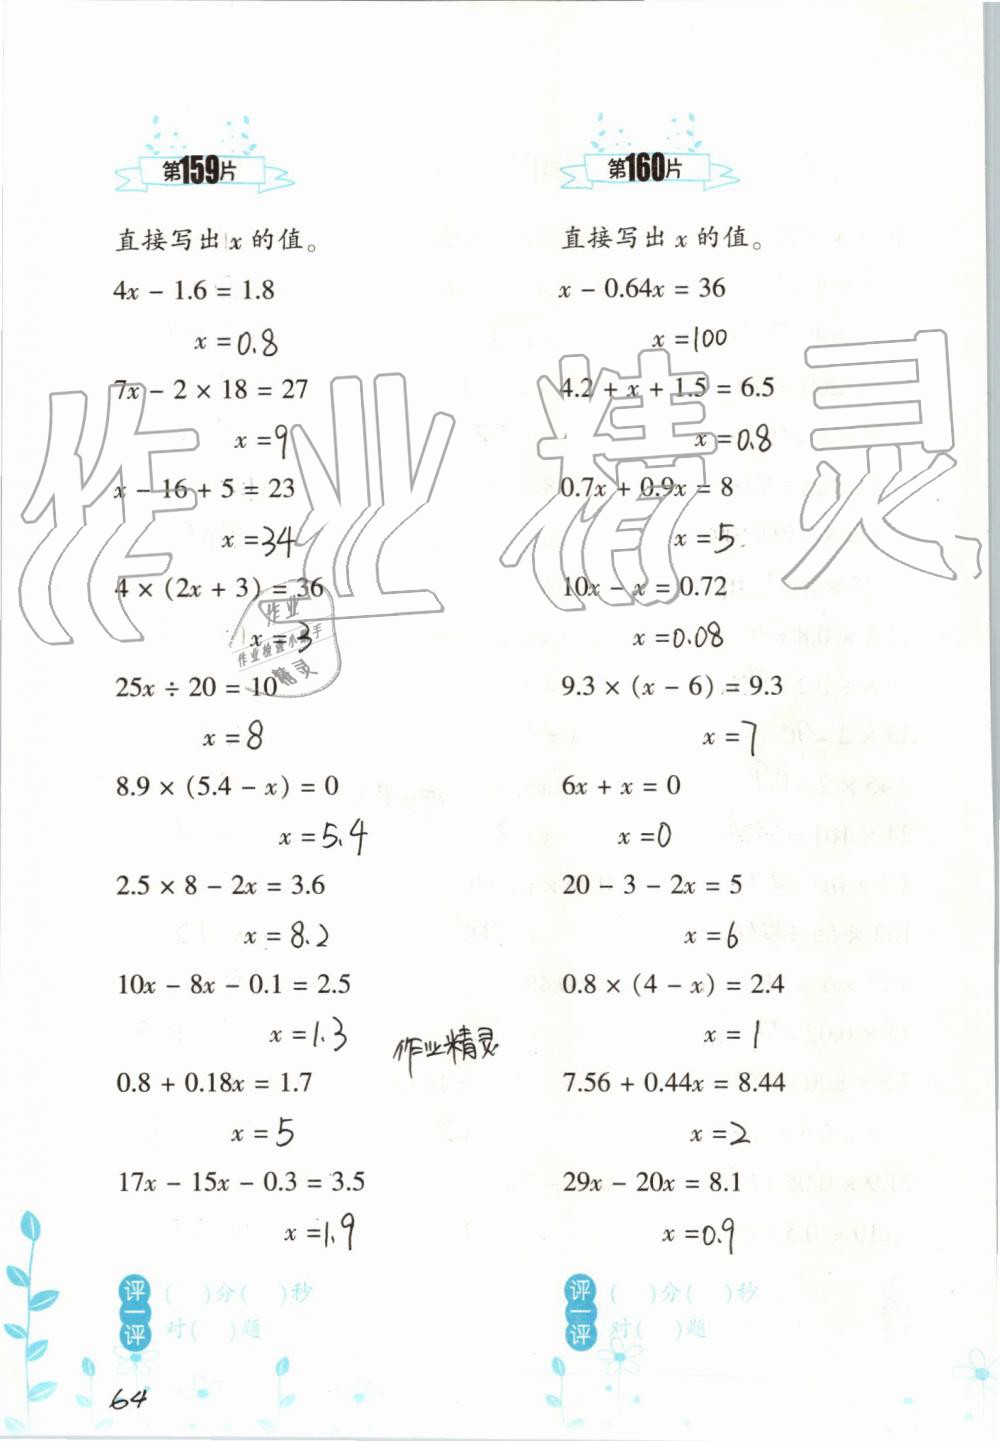 第159片
直接写出x的值。
4x − 1.6 = 1.8
x = 0.8
7x − 2 × 18 = 27
x = 9
x − 16 + 5 = 23
x = 34
4 × (2x + 3) = 36
x = 3
25x ÷ 20 = 10
x = 8
8.9 × (5.4 − x) = 0
x = 5.4
2.5 × 8 − 2x = 3.6
x = 8.2
10x − 8x − 0.1 = 2.5
x = 1.3
0.8 + 0.18x = 1.7
x = 5
17x − 15x − 0.3 = 3.5
x = 1.9
评一评
( )分( )秒
对( )题
64
第160片
直接写出x的值。
x − 0.64x = 36
x = 100
4.2 + x + 1.5 = 6.5
x = 0.8
0.7x + 0.9x = 8
x = 5
10x − x = 0.72
x = 0.08
9.3 × (x − 6) = 9.3
x = 7
6x + x = 0
x = 0
20 − 3 − 2x = 5
x = 6
0.8 × (4 − x) = 2.4
x = 1
7.56 + 0.44x = 8.44
x = 2
29x − 20x = 8.1
x = 0.9
评一评
( )分( )秒
对( )题
作业精灵
作业
作业检查小助手
精灵
作业精灵